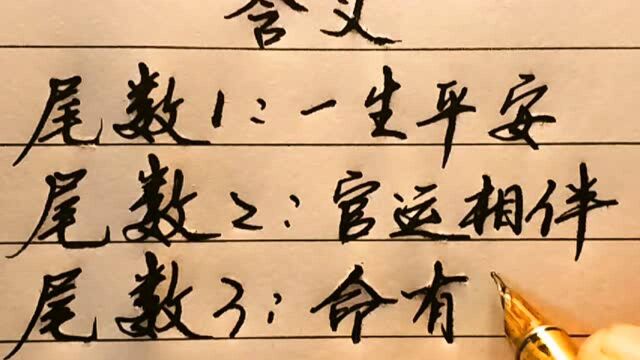 含义
尾数1:一生平安
尾数2:官运相伴
尾数3:命有